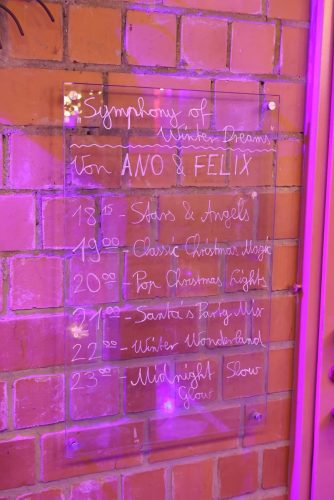 Symphony of
Winter Dreams
Von ANO & FELIX
18¹⁵ - Stars & Angels
19⁰⁰ - Classic Christmas Magic
20⁰⁰ - Pop Christmas Lights
21⁰⁰ - Santa's Party Mix
22⁰⁰ - Winter Wonderland
23⁰⁰ - Midnight Slow
Glow